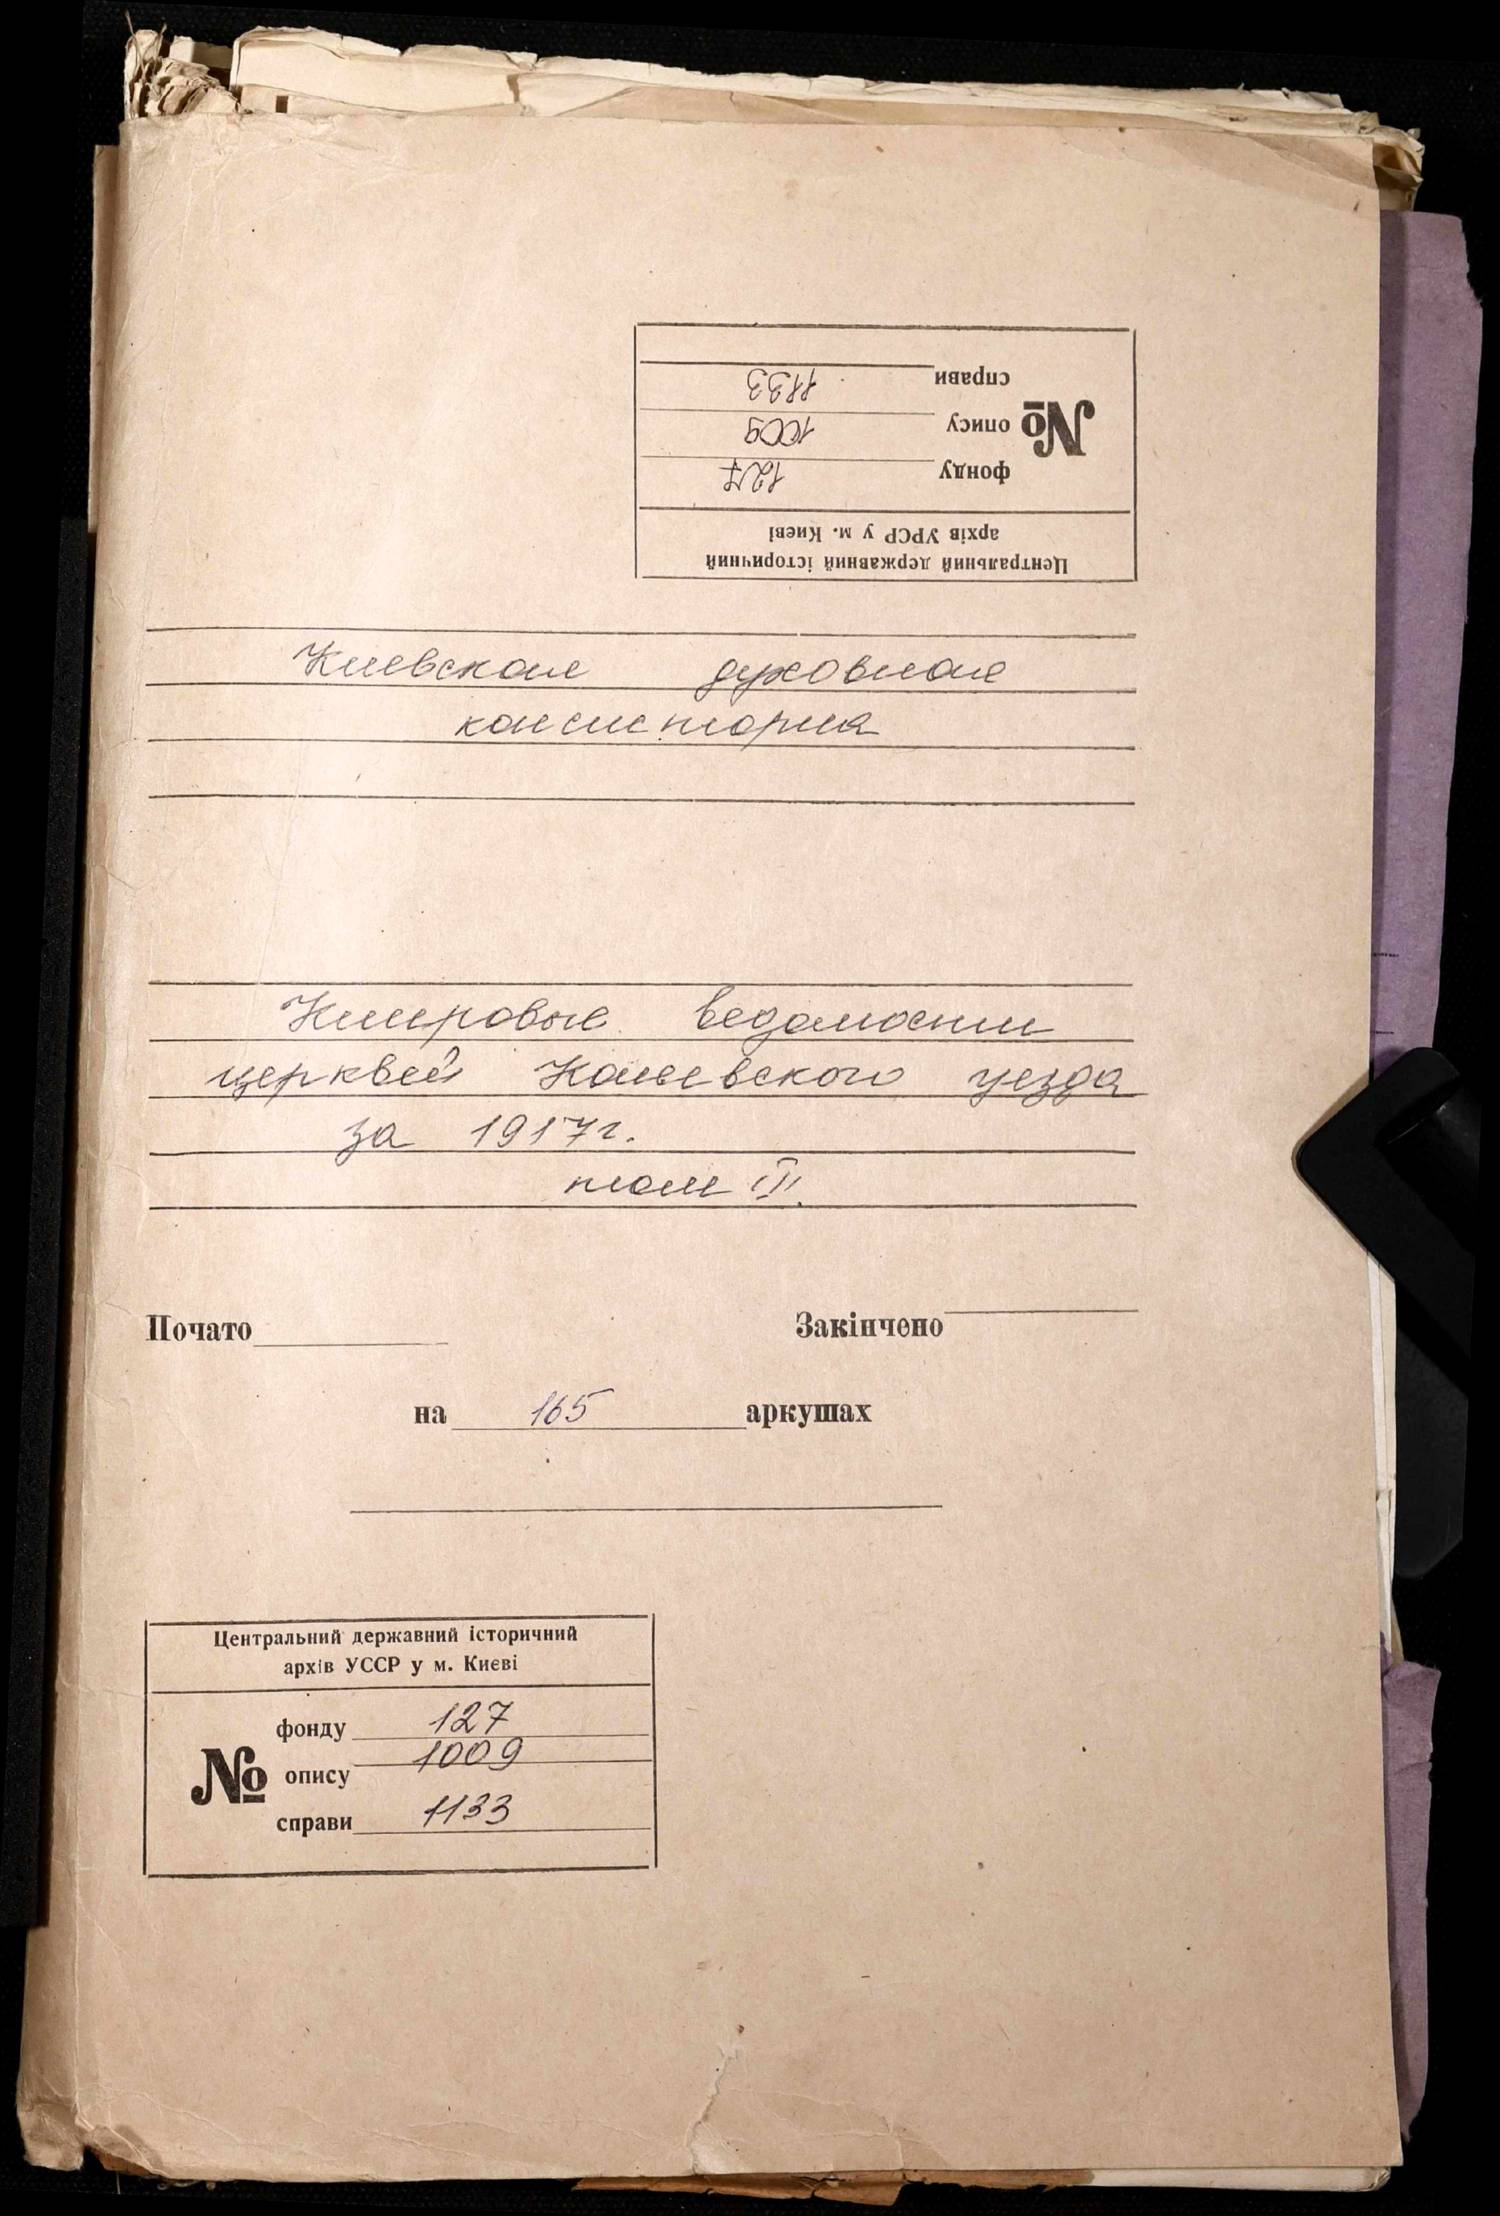 справи 1133
№ опису 1009
фонду 127
Центральний державний історичний
архів УРСР у м. Києві
Киевская духовная
консистория
Клировые ведомости
церквей Каневского уезда
за 1917 г.
том III.
Почато Закінчено
на 165 аркушах
Центральний державний історичний
архів УССР у м. Києві
фонду 127
№ опису 1009
справи 1133